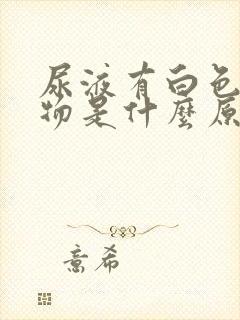 尿液有白色
物是什麼原
意希